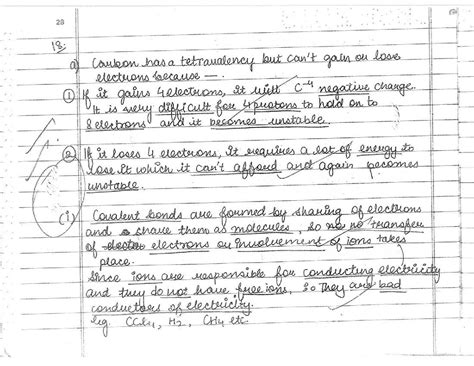 28
18.
a) Carbon has a tetravalency but can't gain or lose
electrons because —.
① If it gains 4 electrons, it will C⁻⁴ negative charge.
It is very difficult for 4 protons to hold on to
8 electrons and it becomes unstable.
② If it loses 4 electrons, it requires a lot of energy to
lose it which it can't afford and again becomes
unstable.
(i) Covalent bonds are formed by sharing of electrons
and share them as molecules, so no no transfer
of electrons or involvement of ions takes
place.
Since ions are responsible for conducting electricity
and they do not have free ions, so They are bad
conductors of electricity.
eg. CCl₄, H₂, CH₄ etc.